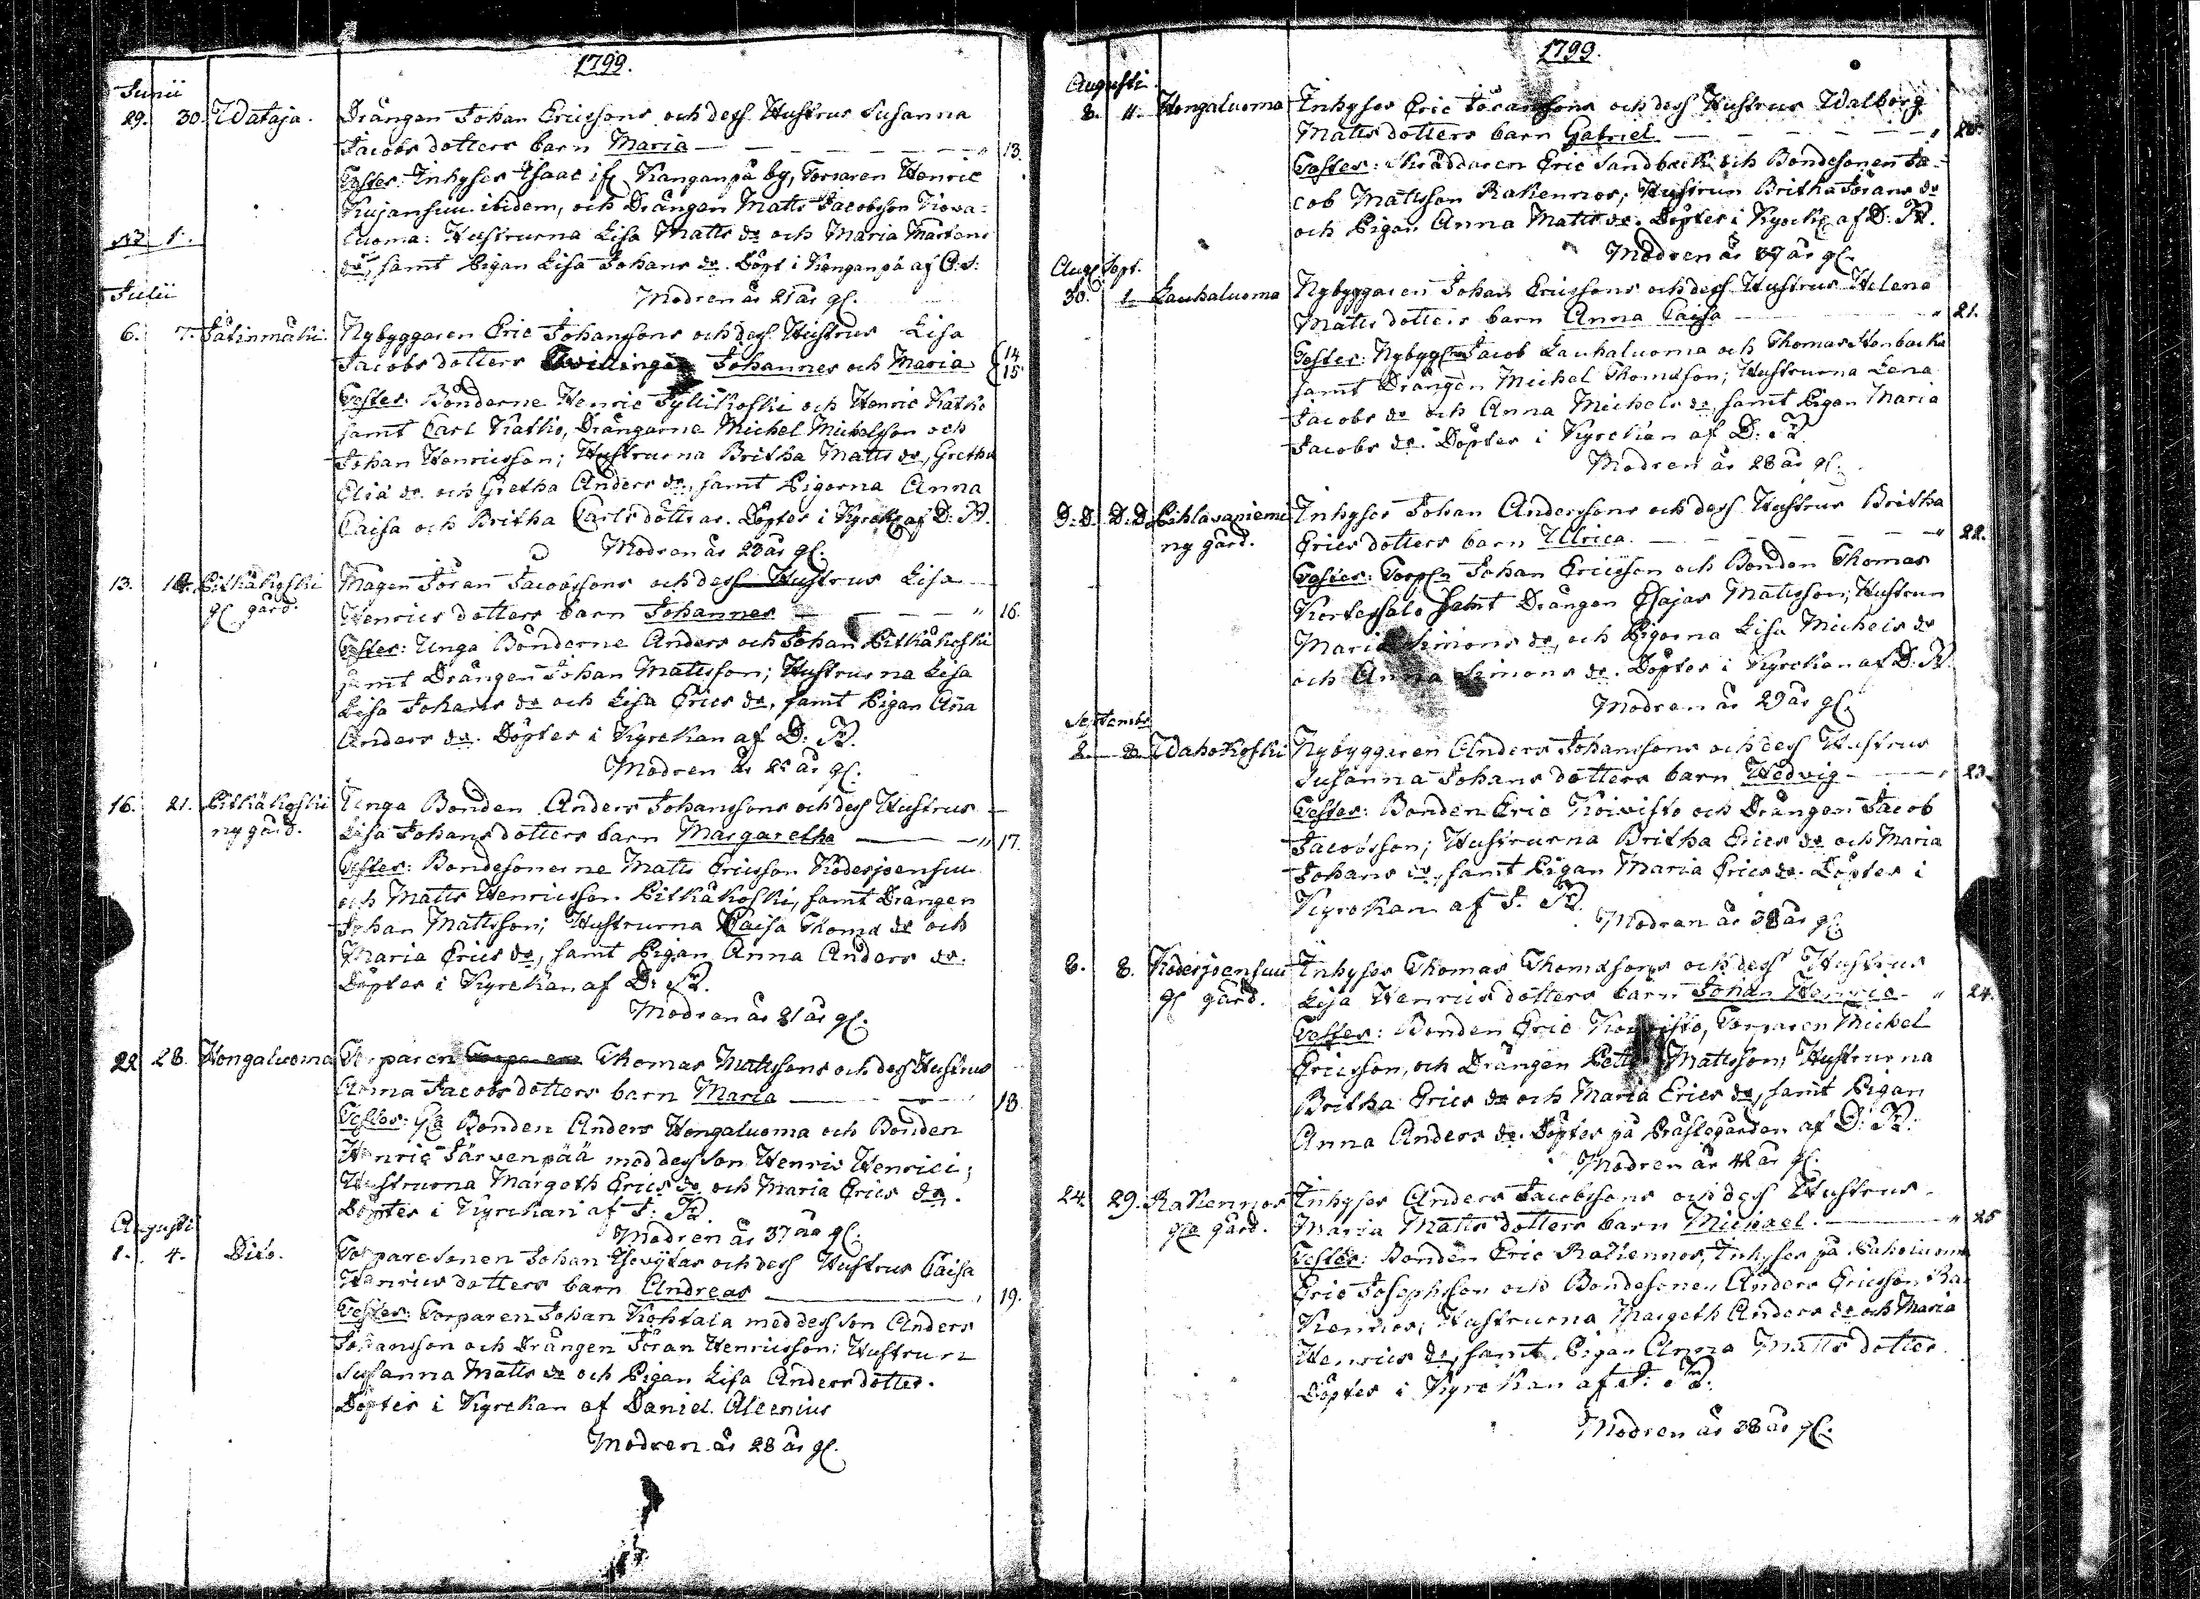 1799.
Junii
29. 30. Wataja. Drängen Johan Ericssons och dess Hustrus Susanna
Jacobs dotters barn Maria — — — — — — " 13.
Testes: Inhyses Isaac if Kanganpä by, Torparen Henric
Kujansuu ibidem, och Drängen Matts Jacobsson Kiova=
luoma: Hustrurna Lisa Matts dr och Maria Mårtens
dr, samt Pigan Lisa Johans dr. Döpt i Kanganpä af
Modren är 21 år gl.
Julii
6. 7. Jätinmäki. Nybyggaren Eric Johanssons och dess Hustrus Lisa
Jacobs dotters Twillingar Johannes och Maria { 14 15
Testes: Bönderne Henric Jyllikoski och Henric Katko
samt Carl Katko, Drängarna Michel Michelsson och
Johan Henricsson; Hustrurna Britha Matts dr, Gretha
Eliæ dr och Gretha Anders dr, samt Pigorna Anna
Caisa och Britha Carls döttrar. Döptes i Kyrck. af D: R.
Modren är 23 år gl.
13. 14. Pitkäkoski Mågen Jöran Jacobssons och dess Hustrus Lisa
gl gård. Henrics dotters barn Johannes — — — — " 16.
Testes: Unga Bönderne Anders och Johan Pitkäkoski
samt Drängen Johan Mattsson; Hustrurna Lisa
Lisa Johans dr och Lisa Erics dr, samt Pigan Aña
Anders dr. Döptes i Kyrckan af D: R.
Modren är 22 år gl.
16. 21. Pitkäkoski Unga Bonden Anders Johanssons och dess Hustrus
ny gård. Lisa Johans dotters barn Margaretha — — " 17.
Testes: Bondesonerne Matts Ericsson Köderjoensuu
och Matts Henricsson Pitkäkoski, samt Drängen
Johan Mattsson; Hustrurna Caisa Thomæ dr och
Maria Erics dr, samt Pigan Anna Anders dr.
Döptes i Kyrckan af D: R.
Modren är 21 år gl.
22. 28. Hongaluoma Torparen Torparens Thomas Mattssons och dess Hustrus
Anna Jacobs dotters barn Maria — — — 18.
Testes: Gla Bonden Anders Hongaluoma och Bonden
Henric Järvenpää med dess son Henric Henrici;
Hustrurna Margeth Erics dr och Maria Erics dr.
Döptes i Kyrckan af J: R.
Modren är 37 år gl.
Augusti
1. 4. Dito. Torparesonen Johan Esvijtas och dess Hustrus Caisa
Henrics dotters barn Andreas — — 19.
Testes: Torparen Johan Kohtala med dess son Anders
Johansson och Drängen Jöran Henricsson; Hustrun
Susanna Matts dr och Pigan Lisa Anders dotter.
Döptes i Kyrckan af Daniel Alcenius
Modren är 28 år gl.
1799.
Augusti
8. 11. Hongaluoma Inhyses Eric Jöranssons och dess Hustrus Walborg
Matts dotters barn Gabriel — — — — — " 20.
Testes: Skräddaren Eric Sandback och Bondesonen Ja=
cob Mattsson Rakennos; Hustrun Britha Jörans dr
och Pigan Anna Matts dr. Döptes i Kyrck. af D: R.
Modren är 37 år gl.
Aug. Sept.
30. 1. Lauhaluoma Nybyggaren Johan Ericssons och dess Hustrus Helena
Matts dotters barn Anna Caisa — " 21.
Testes: Nybyggrne Jacob Lauhaluoma och Thomas Stenbacka
samt Drängen Michel Thomasson; Hustrurna Lena
Jacobs dr och Anna Michels dr samt Pigan Maria
Jacobs dr. Döptes i Kyrckan af D: R.
Modren är 28 år gl.
D:o D:o Pihlavaniemi Inhyses Johan Anderssons och dess Hustrus Britha
ny gård. Erics dotters barn Ulrica — — — — — " 22.
Testes: Torpn Johan Ericsson och Bonden Thomas
Kortessalo samt Drängen Esajas Mattsson; Hustrun
Maria Simons dr, och Pigorna Lisa Michels dr
och Anna Simons dr. Döptes i Kyrckan af D: R.
Modren är 29 år gl.
Septembr
2. Wahokoski Nybyggaren Anders Johanssons och dess Hustrus
Susanna Johans dotters barn Hedvig — — " 23.
Testes: Bonden Eric Koivisto och Drängen Jacob
Jacobsson; Hustrurna Britha Erics dr och Maria
Johans dr, samt Pigan Maria Erics dr. Döptes i
Kyrckan af J. R.
Modren är 38 år gl.
8. 8. Köderjoensuu Inhyses Thomas Thomæsons och dess Hustrus
gl gård. Lisa Henrics dotters barn Johan Henric " 24.
Testes: Bonden Eric Koivisto, Torparen Michel
Ericsson, och Drängen Petter Mattsson; Hustrurna
Britha Erics dr och Maria Erics dr, samt Pigan
Anna Anders dr. Döptes på Prästegården af D: R.
Modren är 42 år gl.
24. 29. Rakennos Inhyses Anders Jacobssons och dess Hustrus
gla gård. Maria Matts dotters barn Michael. — " 25
Testes: Bonden Eric Rakennos, Inhyses på Pahoiuoma
Eric Josephsson och Bondesonen Anders Ericsson Ra=
kennos; Hustrurna Margeth Anders dr och Maria
Henrics dr, samt Pigan Anna Matts dotter.
Döptes i Kyrckan af J: R.
Modren är 38 år gl.